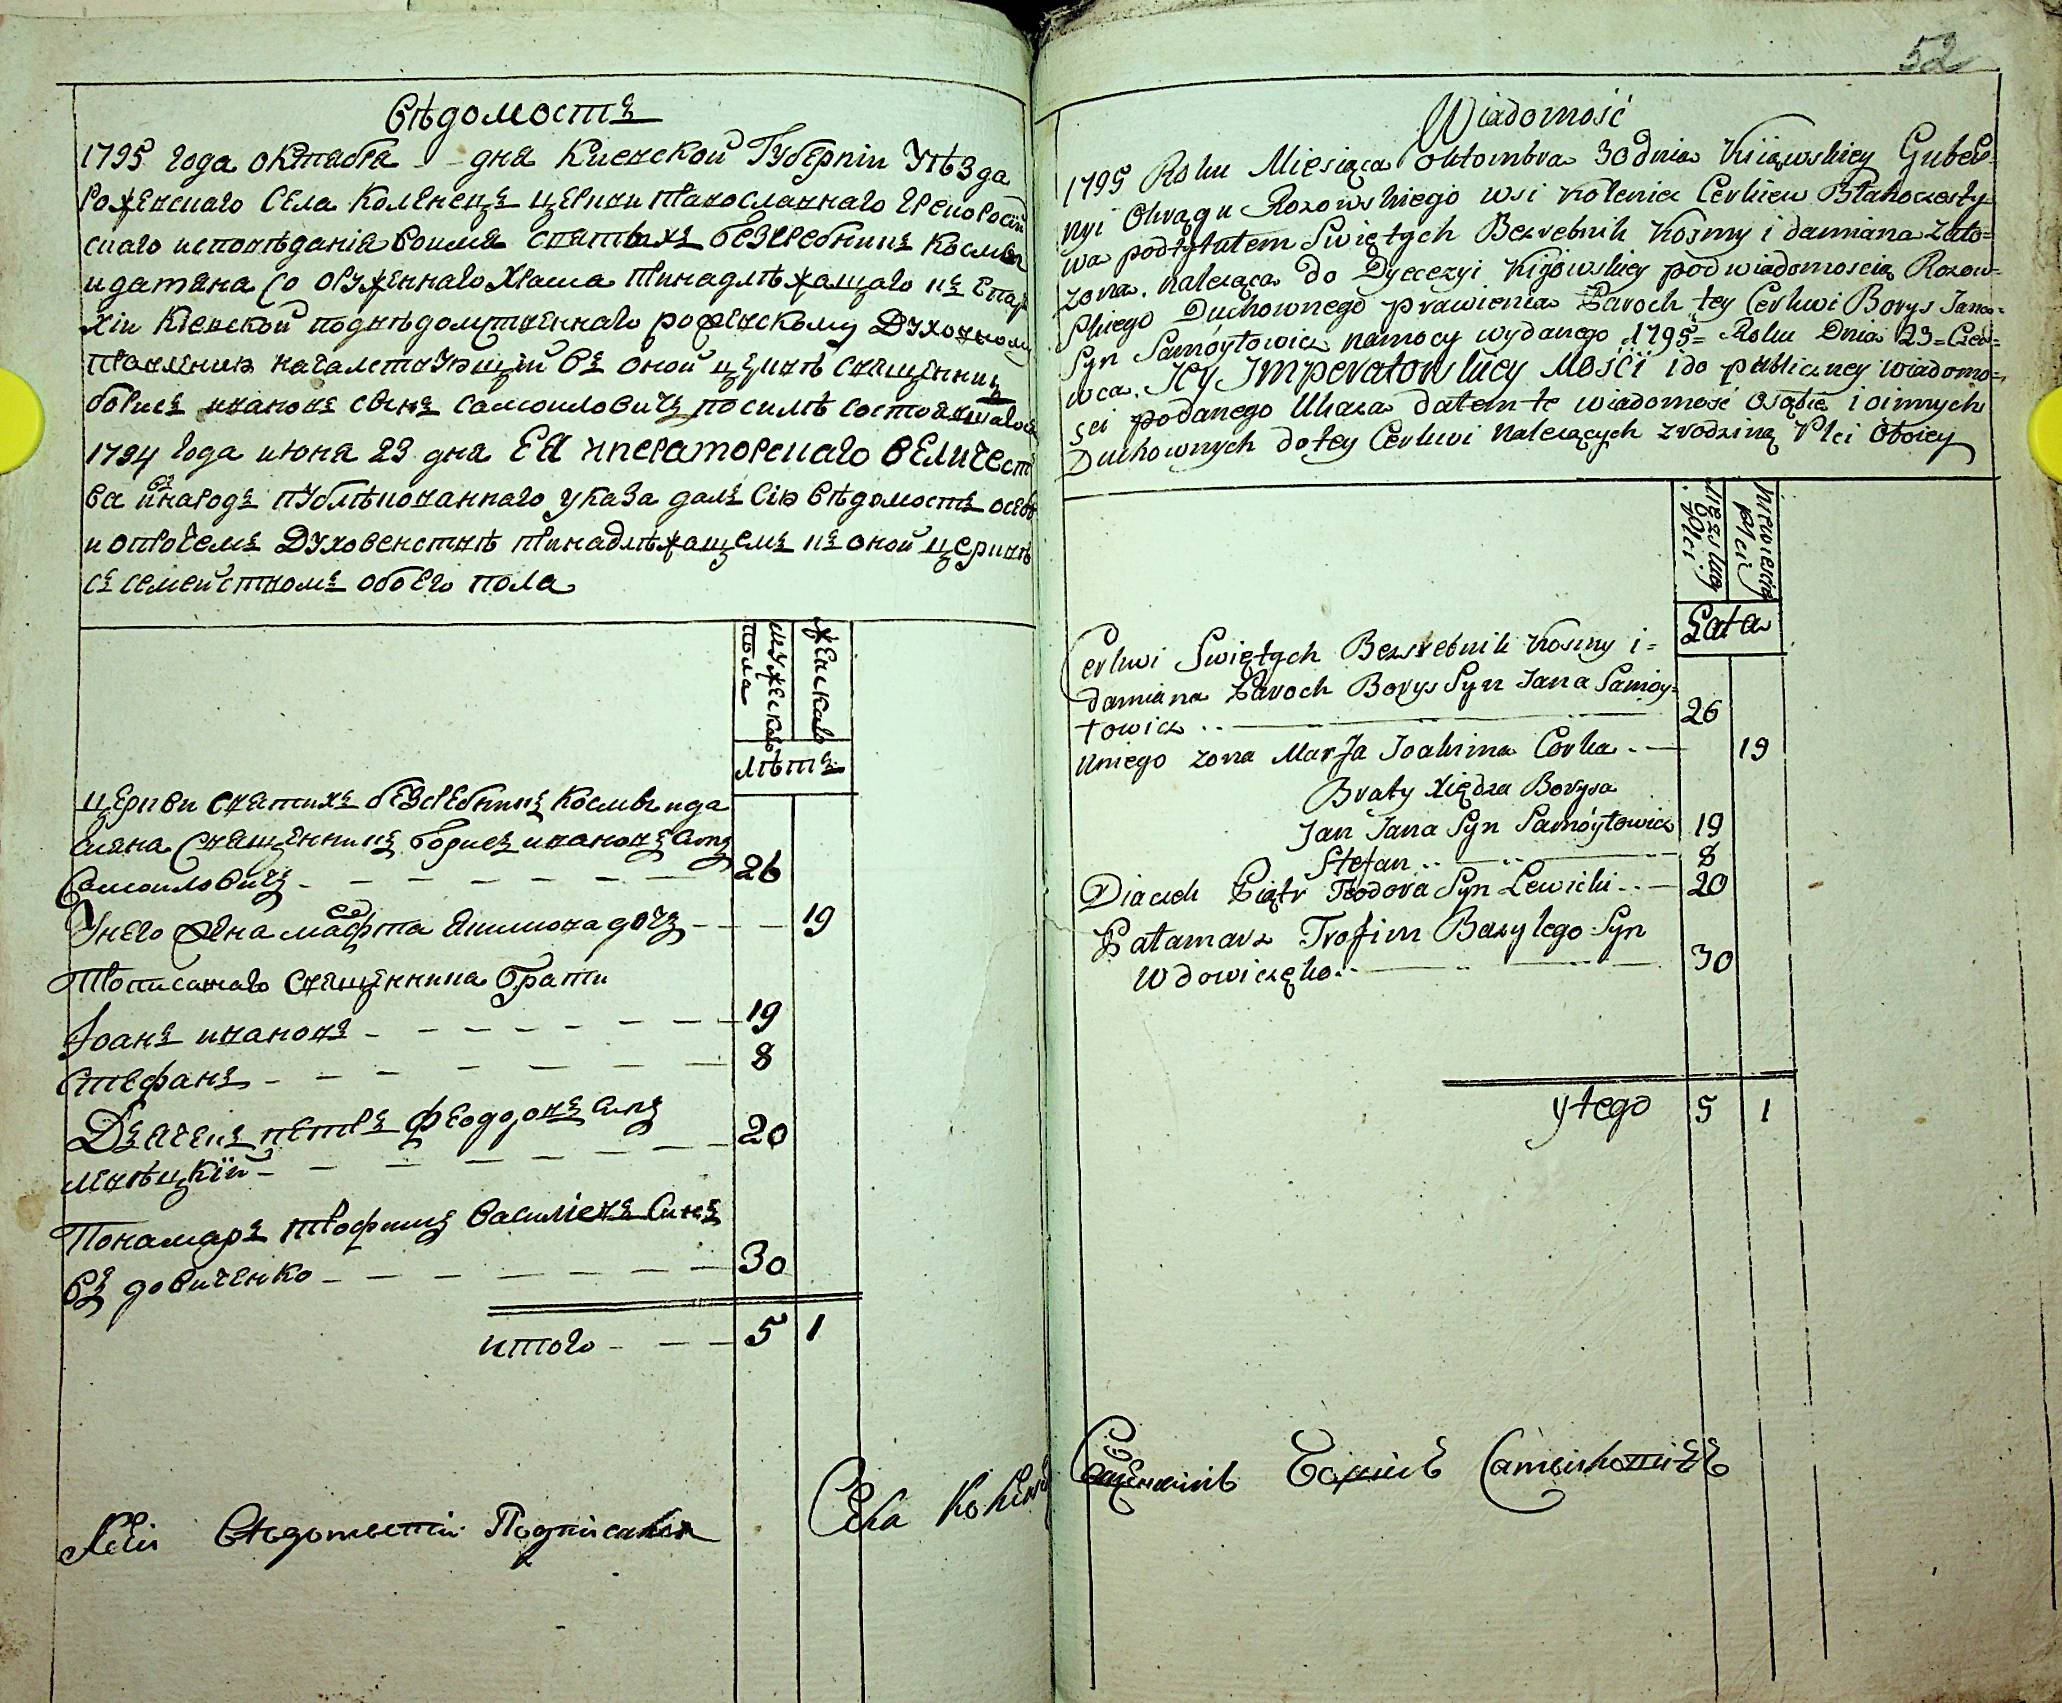 Вѣдомостъ
1795 года октабра - - дня Киевской Губернїи Уѣзда
рожевского Села Коленецъ церкви православнаго грекоросій
скаго исповѣданія воимя святыхъ безсребникъ космы
и дамяна со оружennаго храма принадлѣжащаго къ епар
хіи Кіевской подвѣдомственнаго рожевскому Духовному
правленію началствующій въ оной церквѣ священникъ
борисъ ивановъ свинъ самоиловичъ посилѣ состоявшагося
1794 года июня 23 дня Ея Императорскаго Величест
ва въ народъ публѣкованнаго указа далъ Сію Вѣдомость осебѣ
и опрочемъ Духовенствѣ принадлѣжащемъ къ оной церквѣ
съ семействомъ обоего пола
мужескаго пола
женскаго
лѣтъ
церкви святихъ безсребникъ космы и да
мяна священникъ борисъ ивановъ синъ
Самоиловичъ - - - - - - 26
Унего жена марфа Якимова дочъ - - - 19
Прописанаго священника брати
Іоанъ ивановъ - - - - - - - 19
Стефанъ - - - - - - - 8
Дьячекъ петръ феодоровъ синъ
лѣвѣцкій - - - - - - - 20
Понамаръ трофимъ василіевъ Синъ
въдовиченко - - - - - - - 30
итого - - - 5 1
К Сей Вѣдомости Подписался Села Колен
52
Wiadomość
1795 Roku Miesiąca Oktombra 30 dnia Kiiąwskiey Guber=
nyi Okrągu Rozowskiego wsi Kolenia Cerkiew Błahoczesty
wa podtytułem Swiętych Bezrebnik Kozmy i damiana zało=
zona. należąca do Dyecezyi Kijowskiey podwiadomoscią Rozow=
skiego Duchownego prawienia Paroch tey Cerkwi Borys Jana=
Syn Samoyłowicz namocy wydanego 1795= Roku Dnia 23= Czer=
wca. Jey Imperatorskiey Mości i do publiczney wiadomo=
sci podanego Ukaza datem te wiadomość osąbie i oinnych
Duchownych dotey Cerkwi Nalezących zrodziną Płci Oboiey
Męzkiey płci
Niewiesciey płci
Lata
Cerkwi Swiętych Bezsrebnik Kosmy i=
damiana Paroch Borys Syn Jana Samoy=
łowicz .. - 26
Uniego zona Marya Joakima Corka . - 19
Braty Xiędza Borysa
Jan Jana Syn Samoyłowicz 19
Stefan .. - .. - 8
Diaczek Piątr Teodora Syn Lewicki .. - 20
Patamarz Trofim Bazylego Syn
Wdowiczęko .. - 30
ytego 5 1
Священникъ Борисъ Самойловичъ